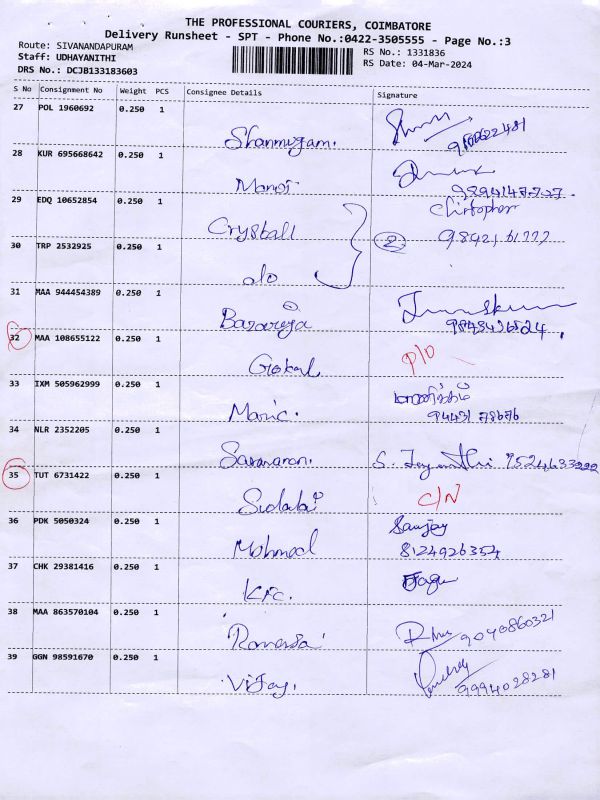 THE PROFESSIONAL COURIERS, COIMBATORE
Delivery Runsheet - SPT - Phone No.:0422-3505555 - Page No.:3
Route: SIVANANDAPURAM
RS No.: 1331836
Staff: UDHAYANITHI
RS Date: 04-Mar-2024
DRS No.: DCJB133183603
S No Consignment No Weight PCS Consignee Details Signature
27 POL 1960692 0.250 1
Shanmugam.
28 KUR 695668642 0.250 1
Manoj
29 EDQ 10652854 0.250 1
Crystall
30 TRP 2532925 0.250 1
2
do
31 MAA 944454389 0.250 1
32 MAA 108655122 0.250 1
Gokul
33 IXM 505962999 0.250 1
Manic.
34 NLR 2352205 0.250 1
Saravanan. S. Jeyanthi
35 TUT 6731422 0.250 1
C/N
36 PDK 5050324 0.250 1
Sanjay
8124926354
37 CHK 29381416 0.250 1
KFC.
38 MAA 863570104 0.250 1
9040860321
39 GGN 98591670 0.250 1
Vijay. 9994028281